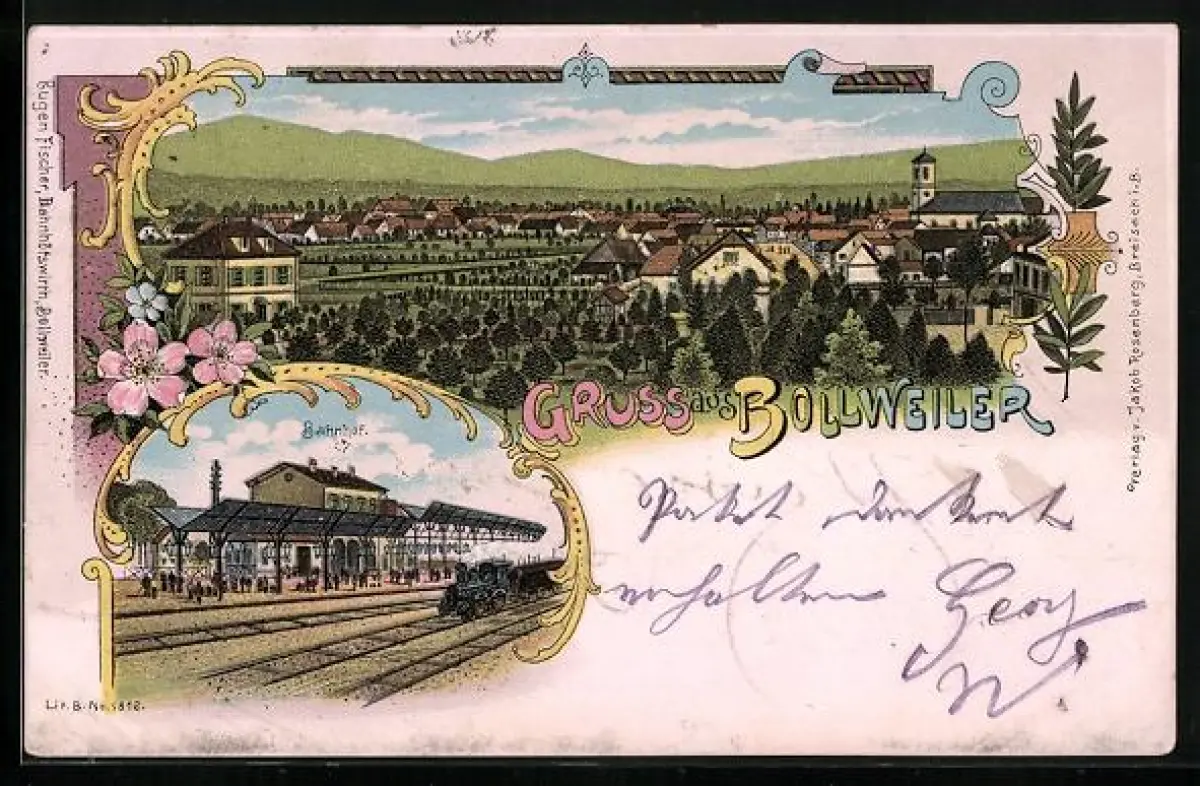 Eugen Fischer, Bahnhofswirth, Bollweiler.
GRUSS aus BOLLWEILER
Bahnhof.
Verlag v. Jakob Rosenberg, Breisach i. B.
Paket dankend
erhalten Georg
Lit. B. Nr. 1812.